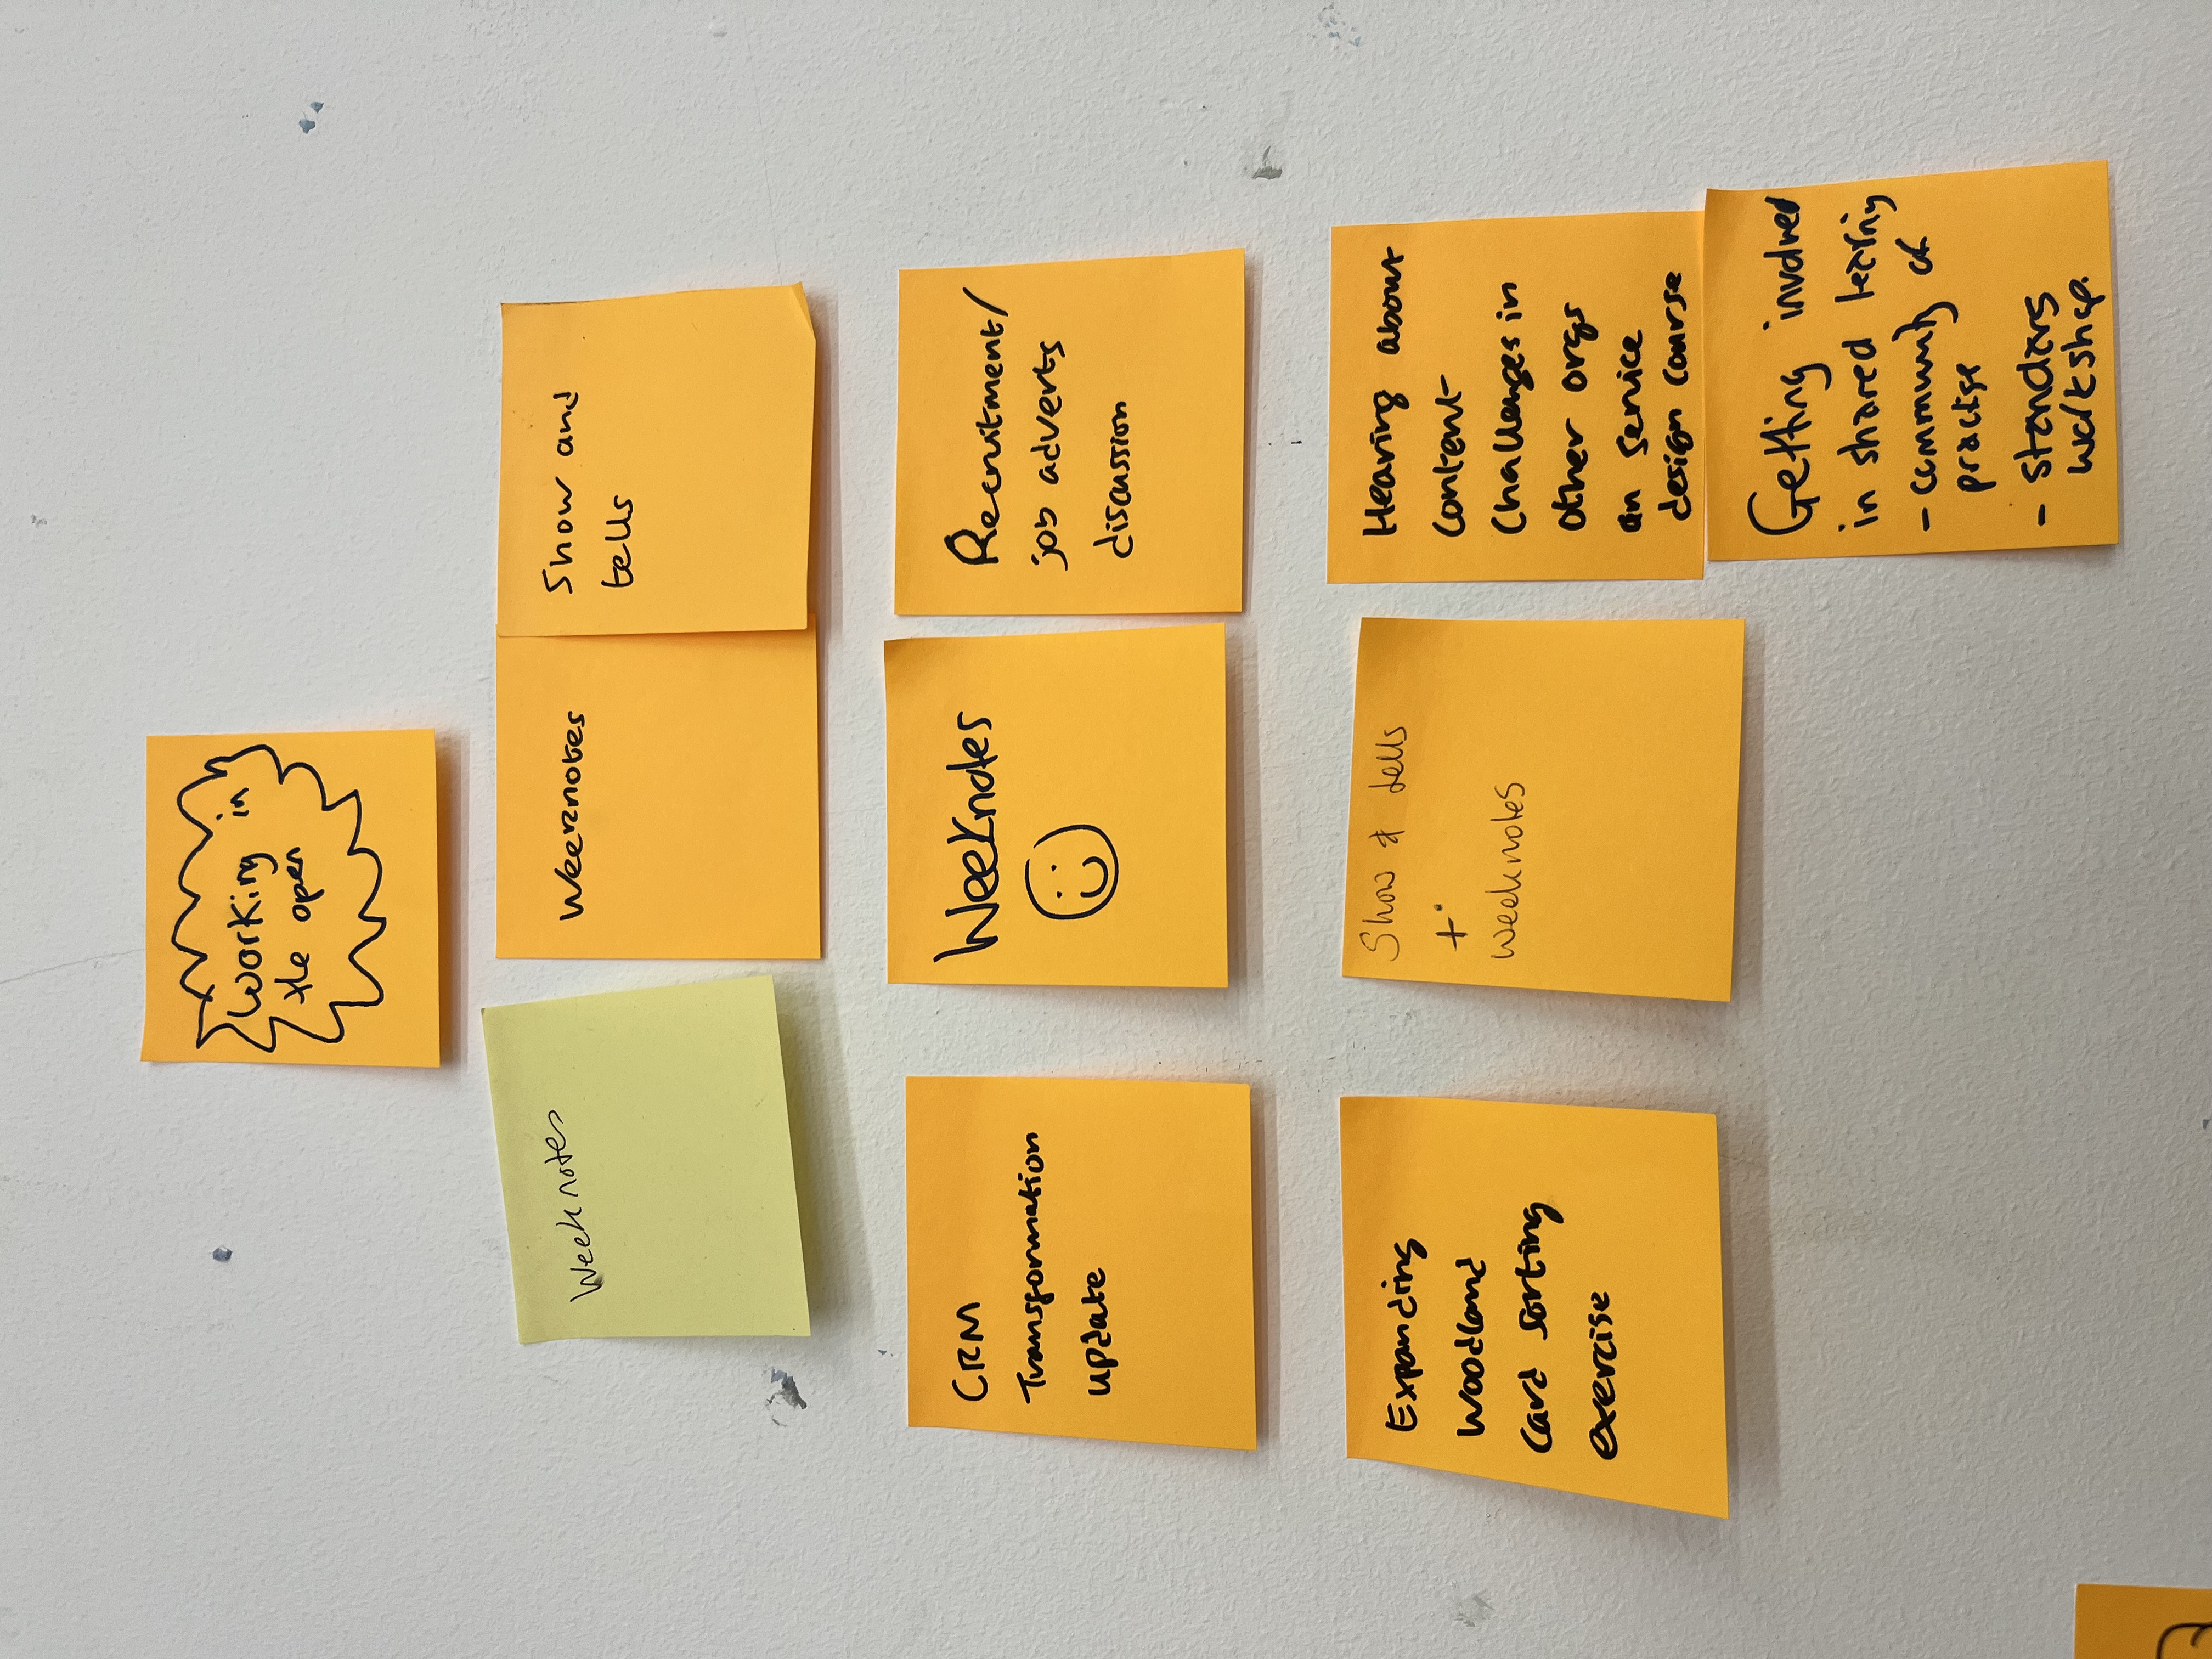 Working in
the open
Weeknotes
Weeknotes
Show and
tells
CRM
Transformation
update
Weeknotes
Recruitment/
job adverts
discussion
Expanding
Woodland
Card sorting
exercise
Show & tells
+
Weeknotes
Hearing about
content
challenges in
other orgs
on service
design course
Getting involved
in shared learning
- community of
practise
- standars
workshop.